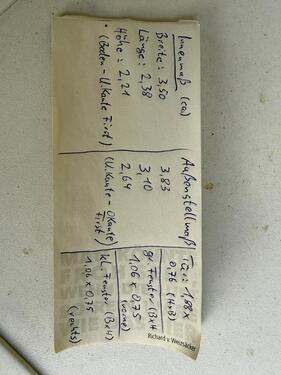 Innenmaß (ca)
Breite: 3,50
Länge: 2,38
Höhe: 2,21
• (Boden - U.Kante First)
Außenstellmaß
3,83
3,10
2,64
(U.Kante - OKante
First)
Tür: 1,88 x
0,76 (HxB)
gr. Fenster (BxH
1,06 x 0,75
(vorne)
kl. Fenster (BxH)
1,06 x 0,75
(rechts)
Richard v. Weizsäcker